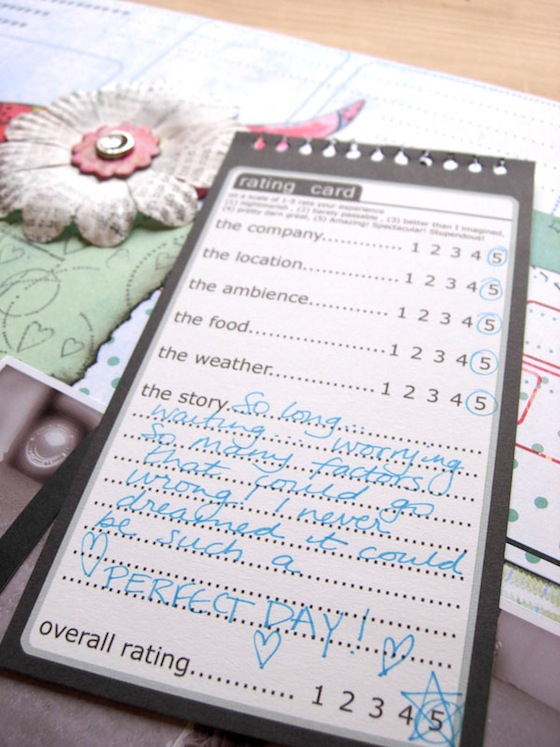 rating card
on a scale of 1-5 rate your experience
(1) nightmarish, (2) barely passable, (3) better than I imagined,
(4) pretty darn great, (5) Amazing! Spectacular! Stupendous!
the company............... 1 2 3 4 5
the location............... 1 2 3 4 5
the ambience............... 1 2 3 4 5
the food............... 1 2 3 4 5
the weather............... 1 2 3 4 5
the story So long...
waiting.... worrying
so many factors
that could go
wrong! I never
dreamed it could
be such a
PERFECT DAY!
overall rating............ 1 2 3 4 5